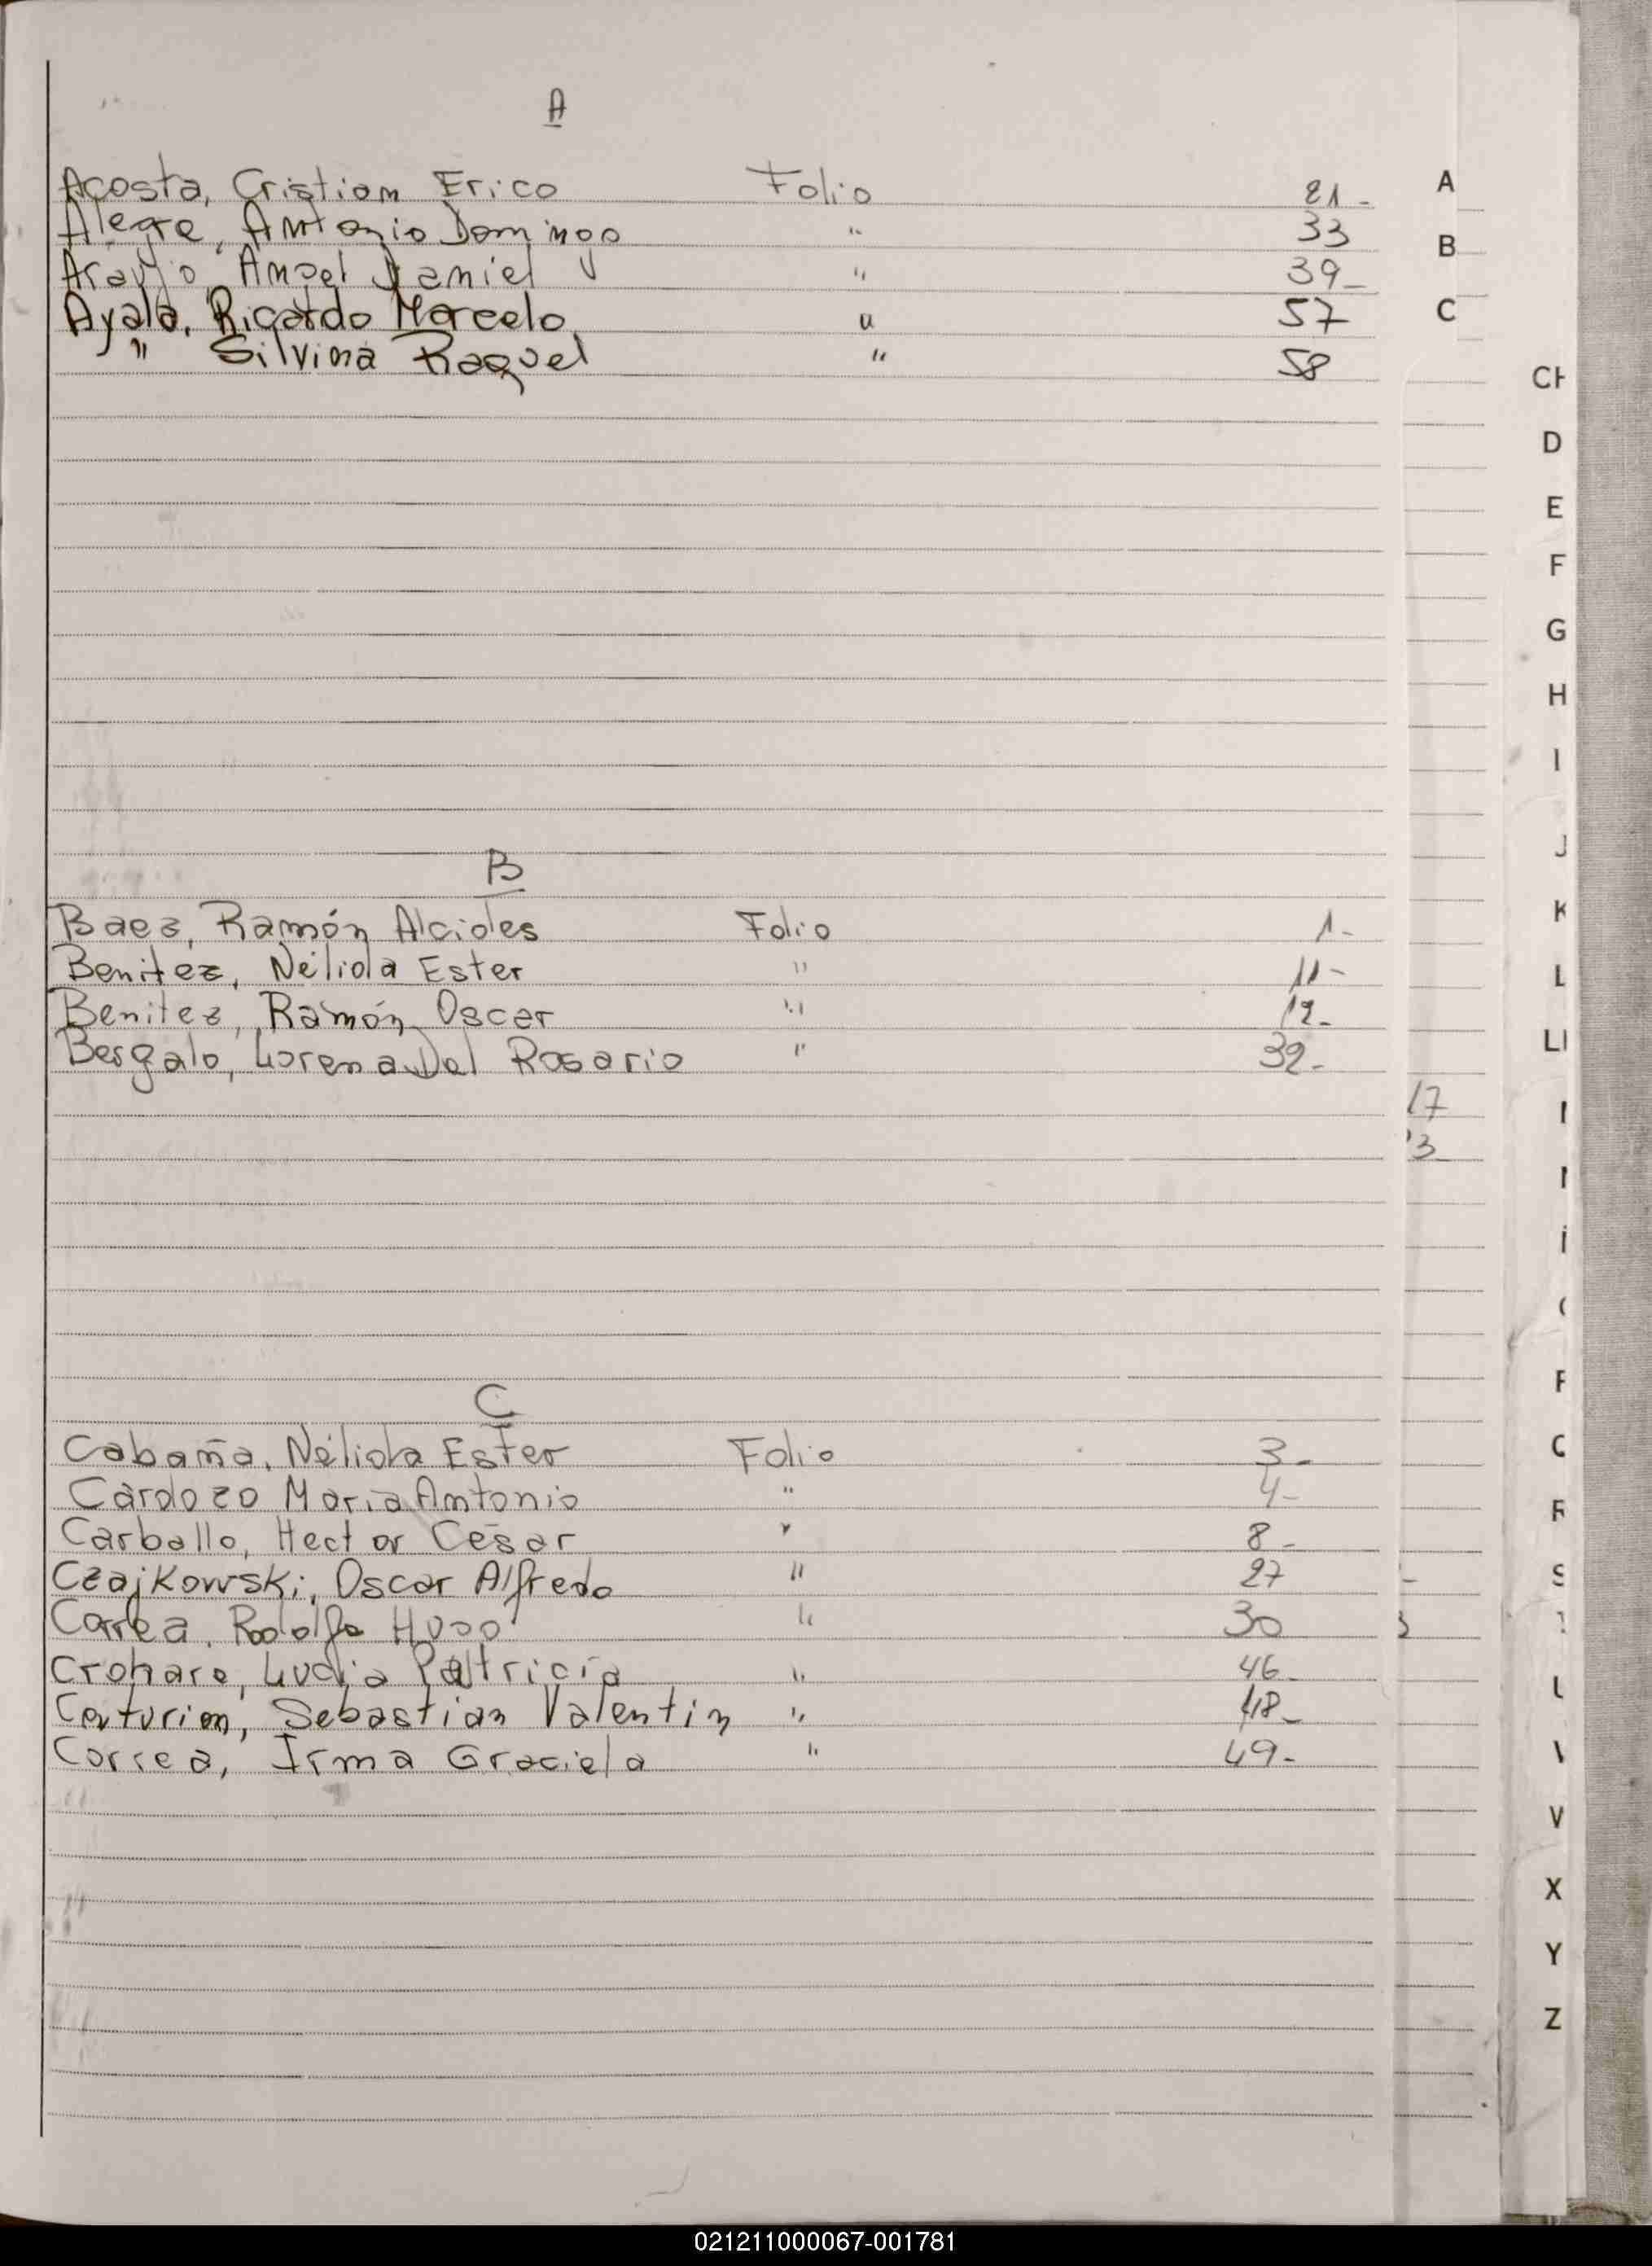 A
Acosta, Cristian Erico Folio 21-
Alegre, Antonio Domingo " 33
Araujo, Angel Daniel " 39-
Ayala, Ricardo Marcelo " 57
" Silvina Raquel " 58
B
Baez, Ramón Alcides Folio 1-
Benitez, Nélida Ester " 11-
Benitez, Ramón Oscar " 12-
Bergalo, Lorena Del Rosario " 32-
17
3
C
Cabaña, Nélida Ester Folio 3-
Cardozo Maria Antonia " 4-
Carballo, Hector César " 8-
Czajkowski, Oscar Alfredo " 27
Correa, Rodolfo Hugo " 30
Crohare, Lucia Patricia " 46-
Centurion, Sebastian Valentin " 48-
Correa, Irma Graciela " 49-
A
B
C
CH
D
E
F
G
H
I
J
K
L
LL
V
X
Y
Z
021211000067-001781